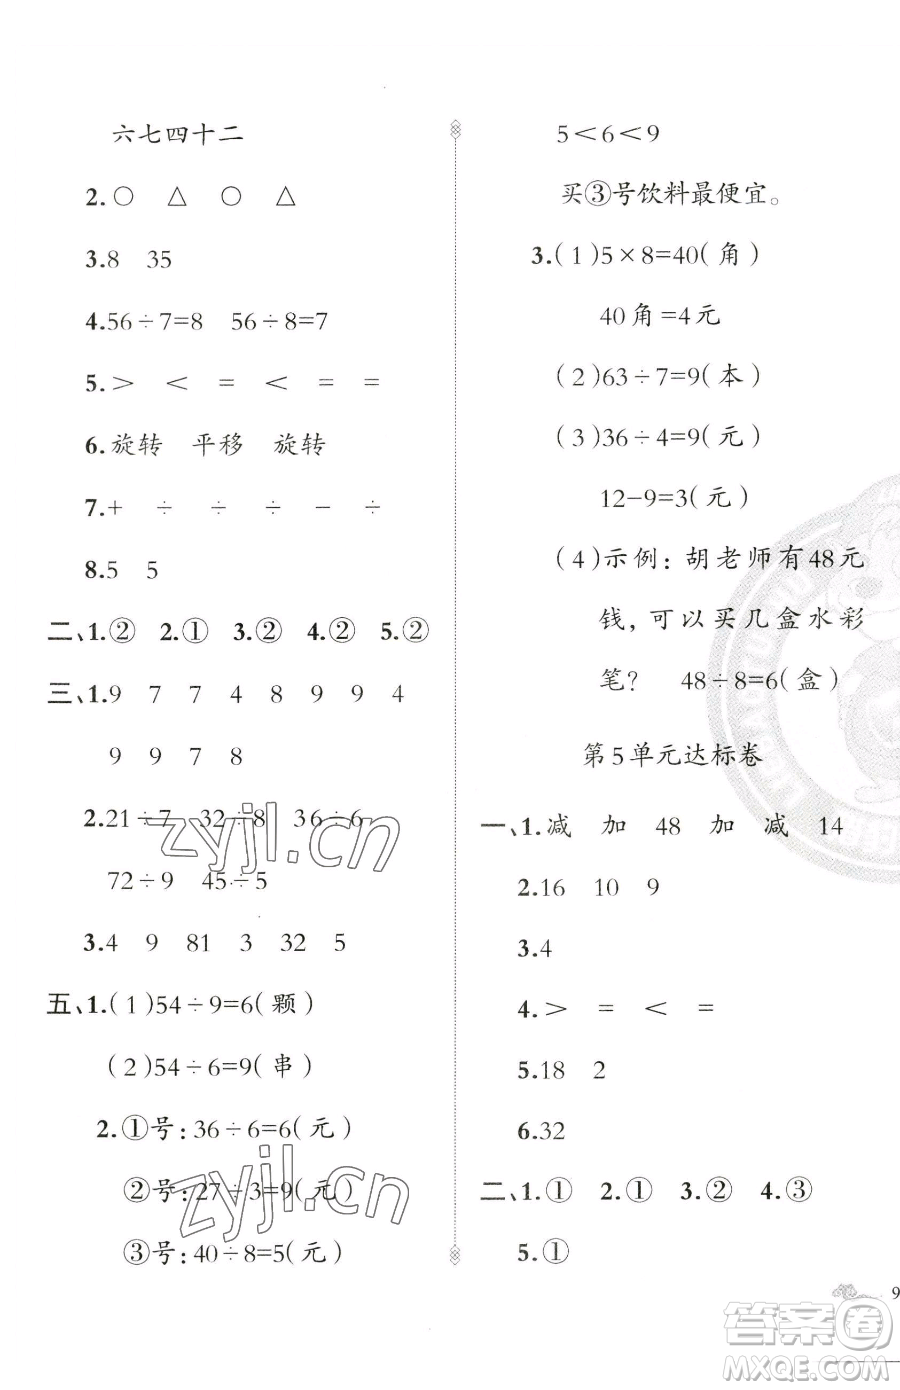 六七四十二
2.○ △ ○ △
3.8 35
4.56÷7=8 56÷8=7
5.> < = < = =
6.旋转 平移 旋转
7.+ ÷ ÷ ÷ − ÷
8.5 5
二、1.② 2.① 3.② 4.② 5.②
三、1.9 7 7 4 8 9 9 4
9 9 7 8
2.21÷7 32÷8 36÷6
72÷9 45÷5
3.4 9 81 3 32 5
五、1.(1)54÷9=6(颗)
(2)54÷6=9(串)
2.①号:36÷6=6(元)
②号:27÷3=9(元)
③号:40÷8=5(元)
5<6<9
买③号饮料最便宜。
3.(1)5×8=40(角)
40角=4元
(2)63÷7=9(本)
(3)36÷4=9(元)
12−9=3(元)
(4)示例:胡老师有48元
钱,可以买几盒水彩
笔? 48÷8=6(盒)
第5单元达标卷
一、1.减 加 48 加 减 14
2.16 10 9
3.4
4.> = < =
5.18 2
6.32
二、1.① 2.① 3.② 4.③
5.①
9
zyjl.cn
zyjl.cn
答案圈
MXQE.COM